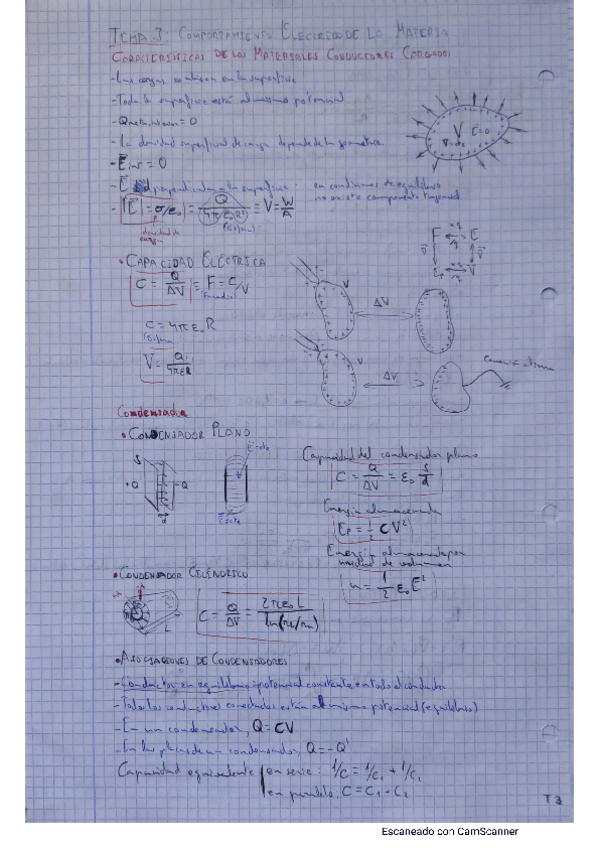 TEMA 3: COMPORTAMIENTO ELÉCTRICO DE LA MATERIA
CARACTERÍSTICAS DE LOS MATERIALES CONDUCTORES CARGADOS
- Las cargas se sitúan en la superficie
- Toda la superficie está al mismo potencial
- Q neta, interior = 0
- La densidad superficial de carga depende de la geometría
V E=0
- E int = 0
- E perpendicular a la superficie: en condiciones de equilibrio
no existe componente tangencial
- |E| = σ/ε₀ = Q / 4πε₀R² = V = W/A
densidad de carga
F E
Ep V
• CAPACIDAD ELÉCTRICA
C = Q/ΔV = F = C/V
Faradio
V ΔV
C = 4πε₀R
V = Q / 4πεR
V ΔV
Condensador
• CONDENSADOR PLANO
S E=cte
+Q -Q
d
E=cte
Capacidad del condensador plano
C = Q/ΔV = ε₀ S/d
Energía almacenada
Ep = 1/2 CV²
Energía almacenada por
unidad de volumen
u = 1/2 ε₀E²
• CONDENSADOR CILÍNDRICO
L
C = Q/ΔV = 2πε₀L /
• ASOCIACIONES DE CONDENSADORES
- Conductor en equilibrio: potencial constante en todo el conductor
- Todos los conductores conectados están al mismo potencial (equilibrio)
- En un condensador, Q = CV
- En las placas de un condensador, Q = -Q'
Capacidad equivalente en serie: 1/C = 1/C₁ + 1/C₂
en paralelo, C = C₁ - C₂
T3
Escaneado con CamScanner